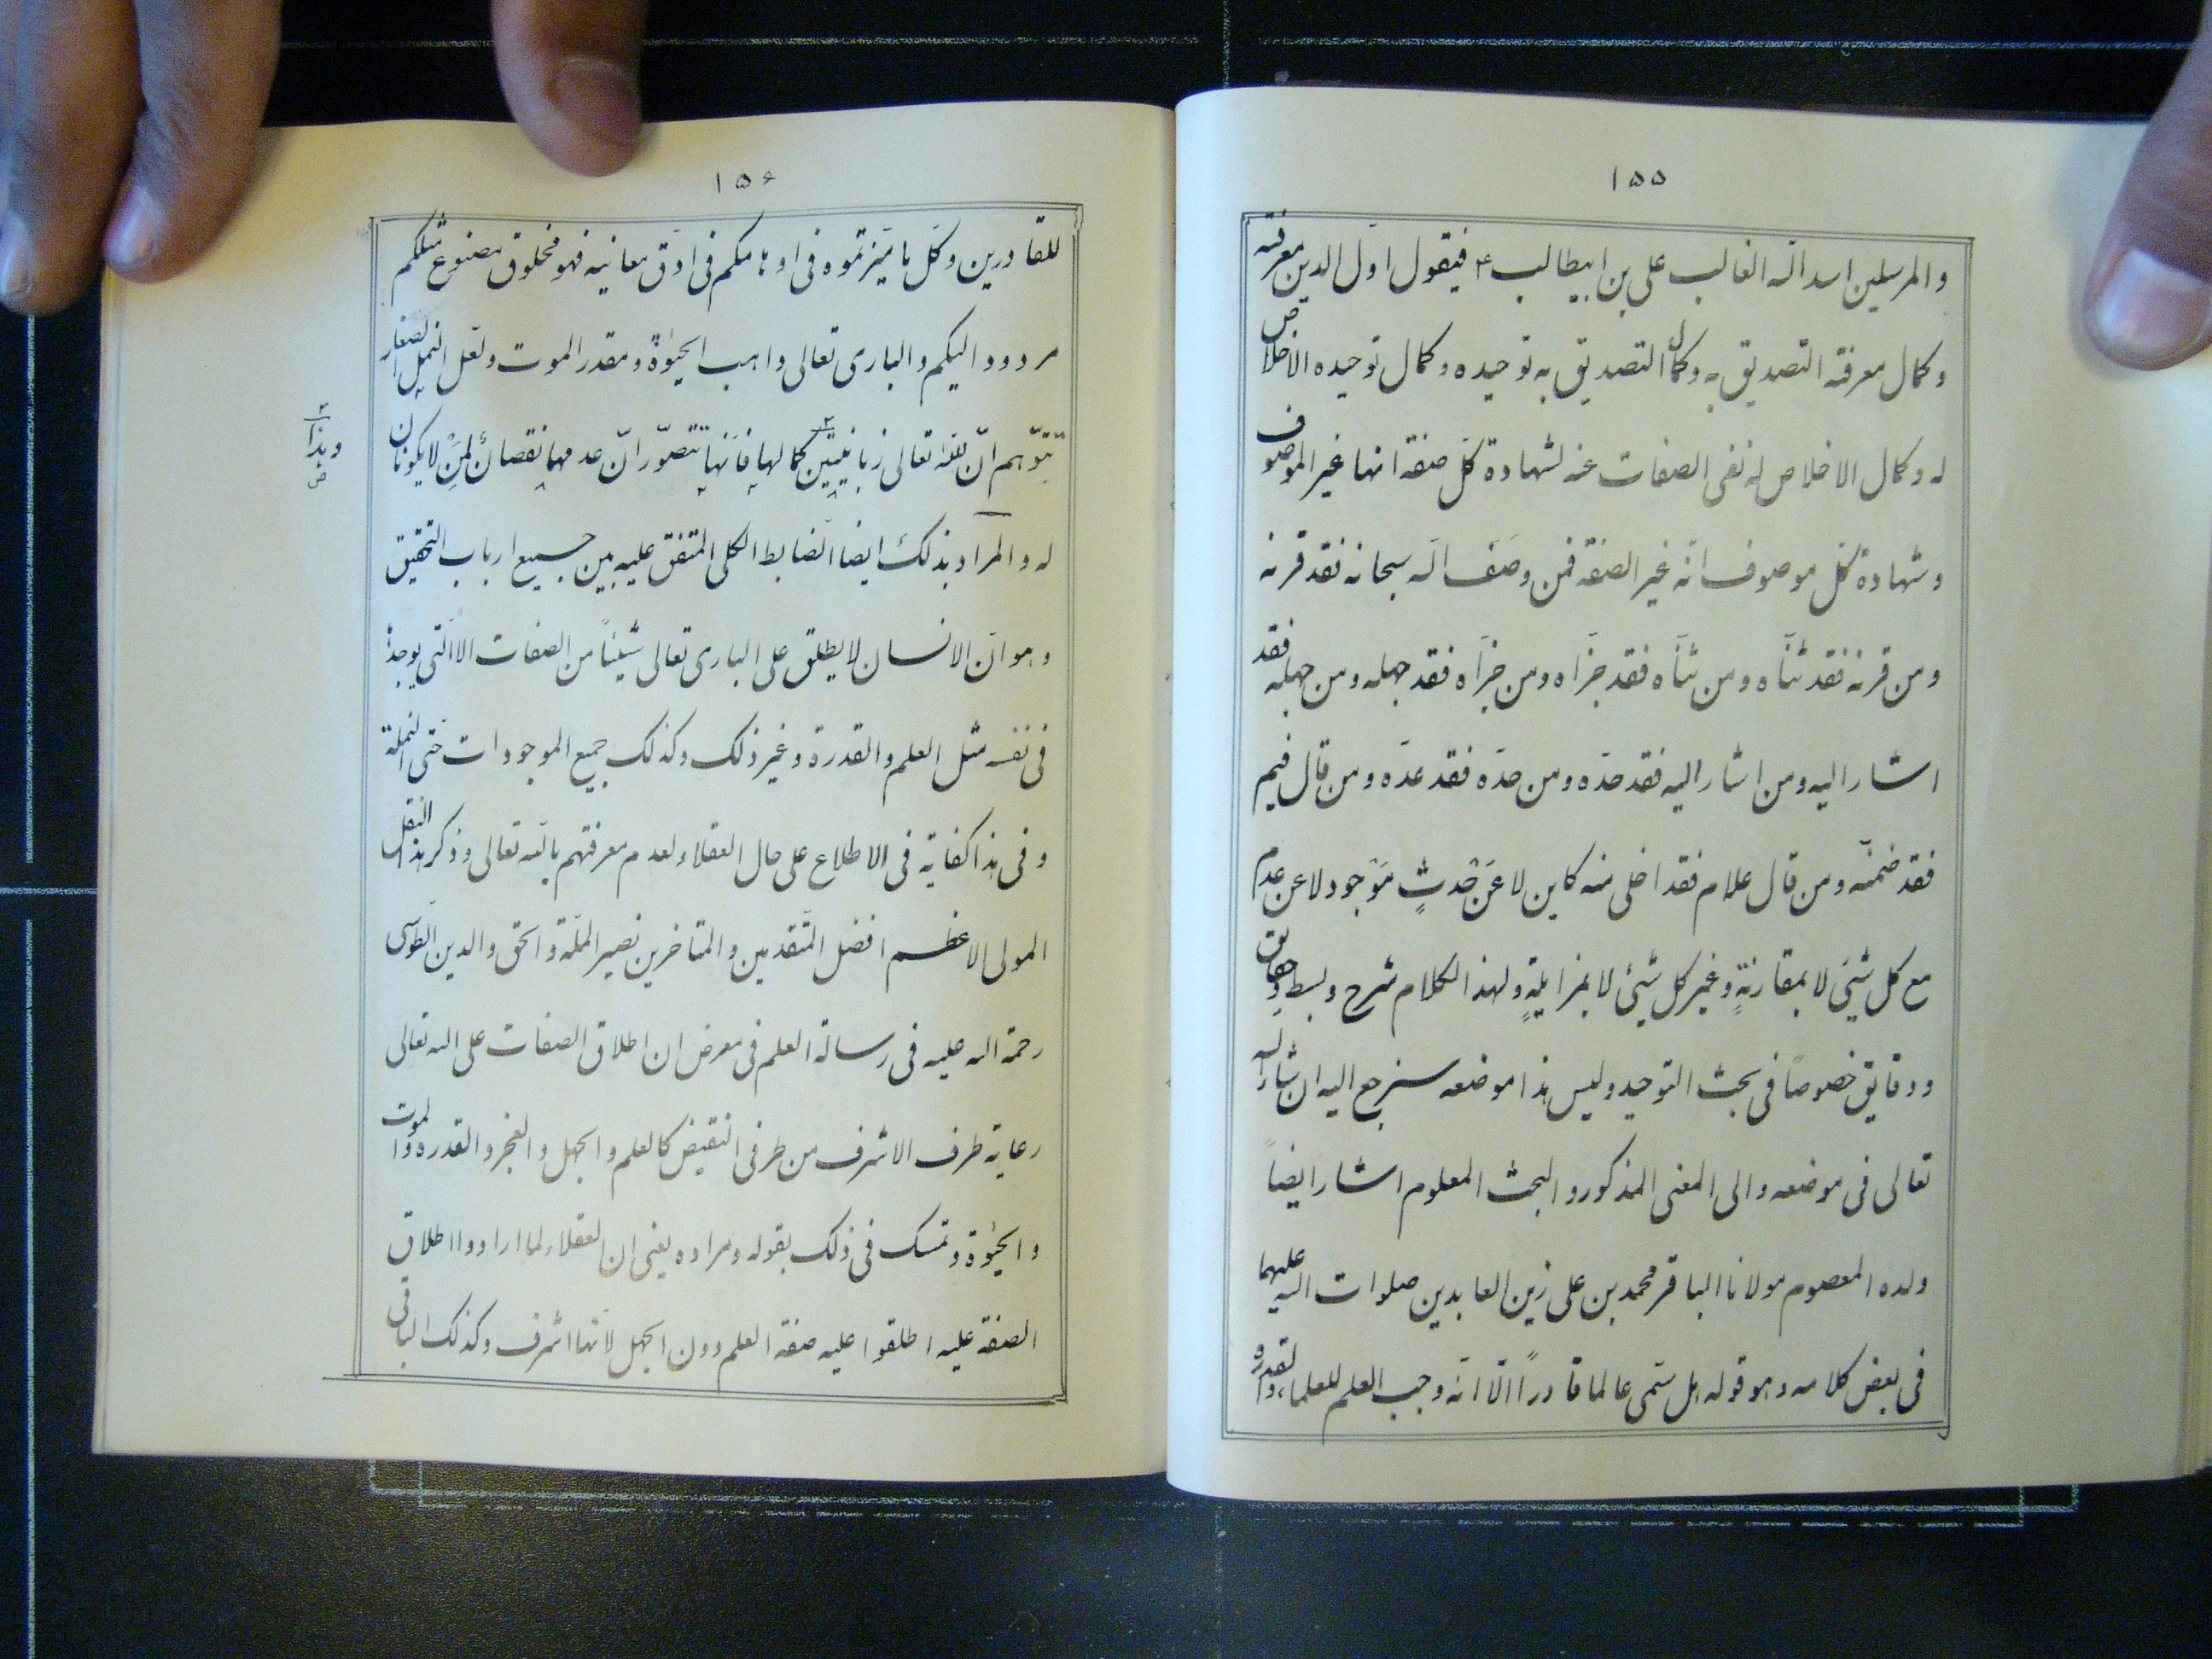 ۱۵۵
والمرسلین اسدالله الغالب علی بن ابیطالب ۴ فیقول اول الدین معرفته
وکمال معرفته التصدیق به وکمال التصدیق به توحیده وکمال توحیده الاخلاص
له وکمال الاخلاص له نفی الصفات عنه لشهادة کل صفة انها غیر الموصوف
وشهادة کل موصوف انّه غیر الصفة فمن وصَف الله سبحانه فقد قرنه
ومن قرنه فقد ثنّاه ومن ثنّاه فقد جزّاه ومن جزّاه فقد جهله ومن جهله فقد
اشار الیه ومن اشار الیه فقد حدّه ومن حدّه فقد عدّه ومن قال فیم
فقد ضمنّه ومن قال علام فقد اخلی منه کاین لا عَن حَدثٍ مَوجود لا عن عدم
مع کل شیئ لا بمقارنةٍ وغیر کل شیئ لا بمزایلةٍ ولهذا الکلام شرح وبسط وحقایق
ودقایق خصوصاً فی بحث التوحید ولیس هذا موضعه سنرجع الیه ان شاءالله
تعالی فی موضعه والی المعنی المذکور والبحث المعلوم اشار ایضاً
ولده المعصوم مولانا الباقر محمد بن علی زین العابدین صلوات الله علیهما
فی بعض کلامه وهو قوله هل سمّی عالما قادراً الّا انّه وهب العلم للعلماء والقدرة
۱۵۶
للقادرین وکلّ ما میّزتموه فی اوهامکم فی ادقّ معانیه فهو مخلوق مصنوع مثلکم
مردود الیکم والباری تعالی واهب الحیوة ومقدر الموت ولعل النمل الصغار
تتوّهم انّ لله تعالی زبانیتین کمالها فانّها تتصوّر انّ عدمهما نقصانٌ لِمَن لا یکونان
وهذا
له والمراد بذلک ایضا الضابط الکلی المتفق علیه بین جمیع ارباب التحقیق
وهو انّ الانسان لا یطلق علی الباری تعالی شیئاً من الصفات الا التی یوجد
فی نفسه مثل العلم والقدرة وغیر ذلک وکذلک جمیع الموجودات حتی النملة
وفی هذا کفایة فی الاطلاع علی حال العقلاء لعدم معرفتهم بالله تعالی وذکر هذا النقل
المولی الاعظم افضل المتقدمین والمتاخرین نصیر الملّة والحق والدین الطوسی
رحمة الله علیه فی رسالة العلم فی معرض ان اطلاق الصفات علی الله تعالی
رعایة طرف الاشرف من طرفی النقیض کالعلم والجهل والعجز والقدره والموت
والحیوة وتمسک فی ذلک بقوله ومراده یعنی ان العقلاء لما ارادوا اطلاق
الصفة علیه اطلقوا علیه صفة العلم دون الجهل لانها اشرف وکذلک الباقی